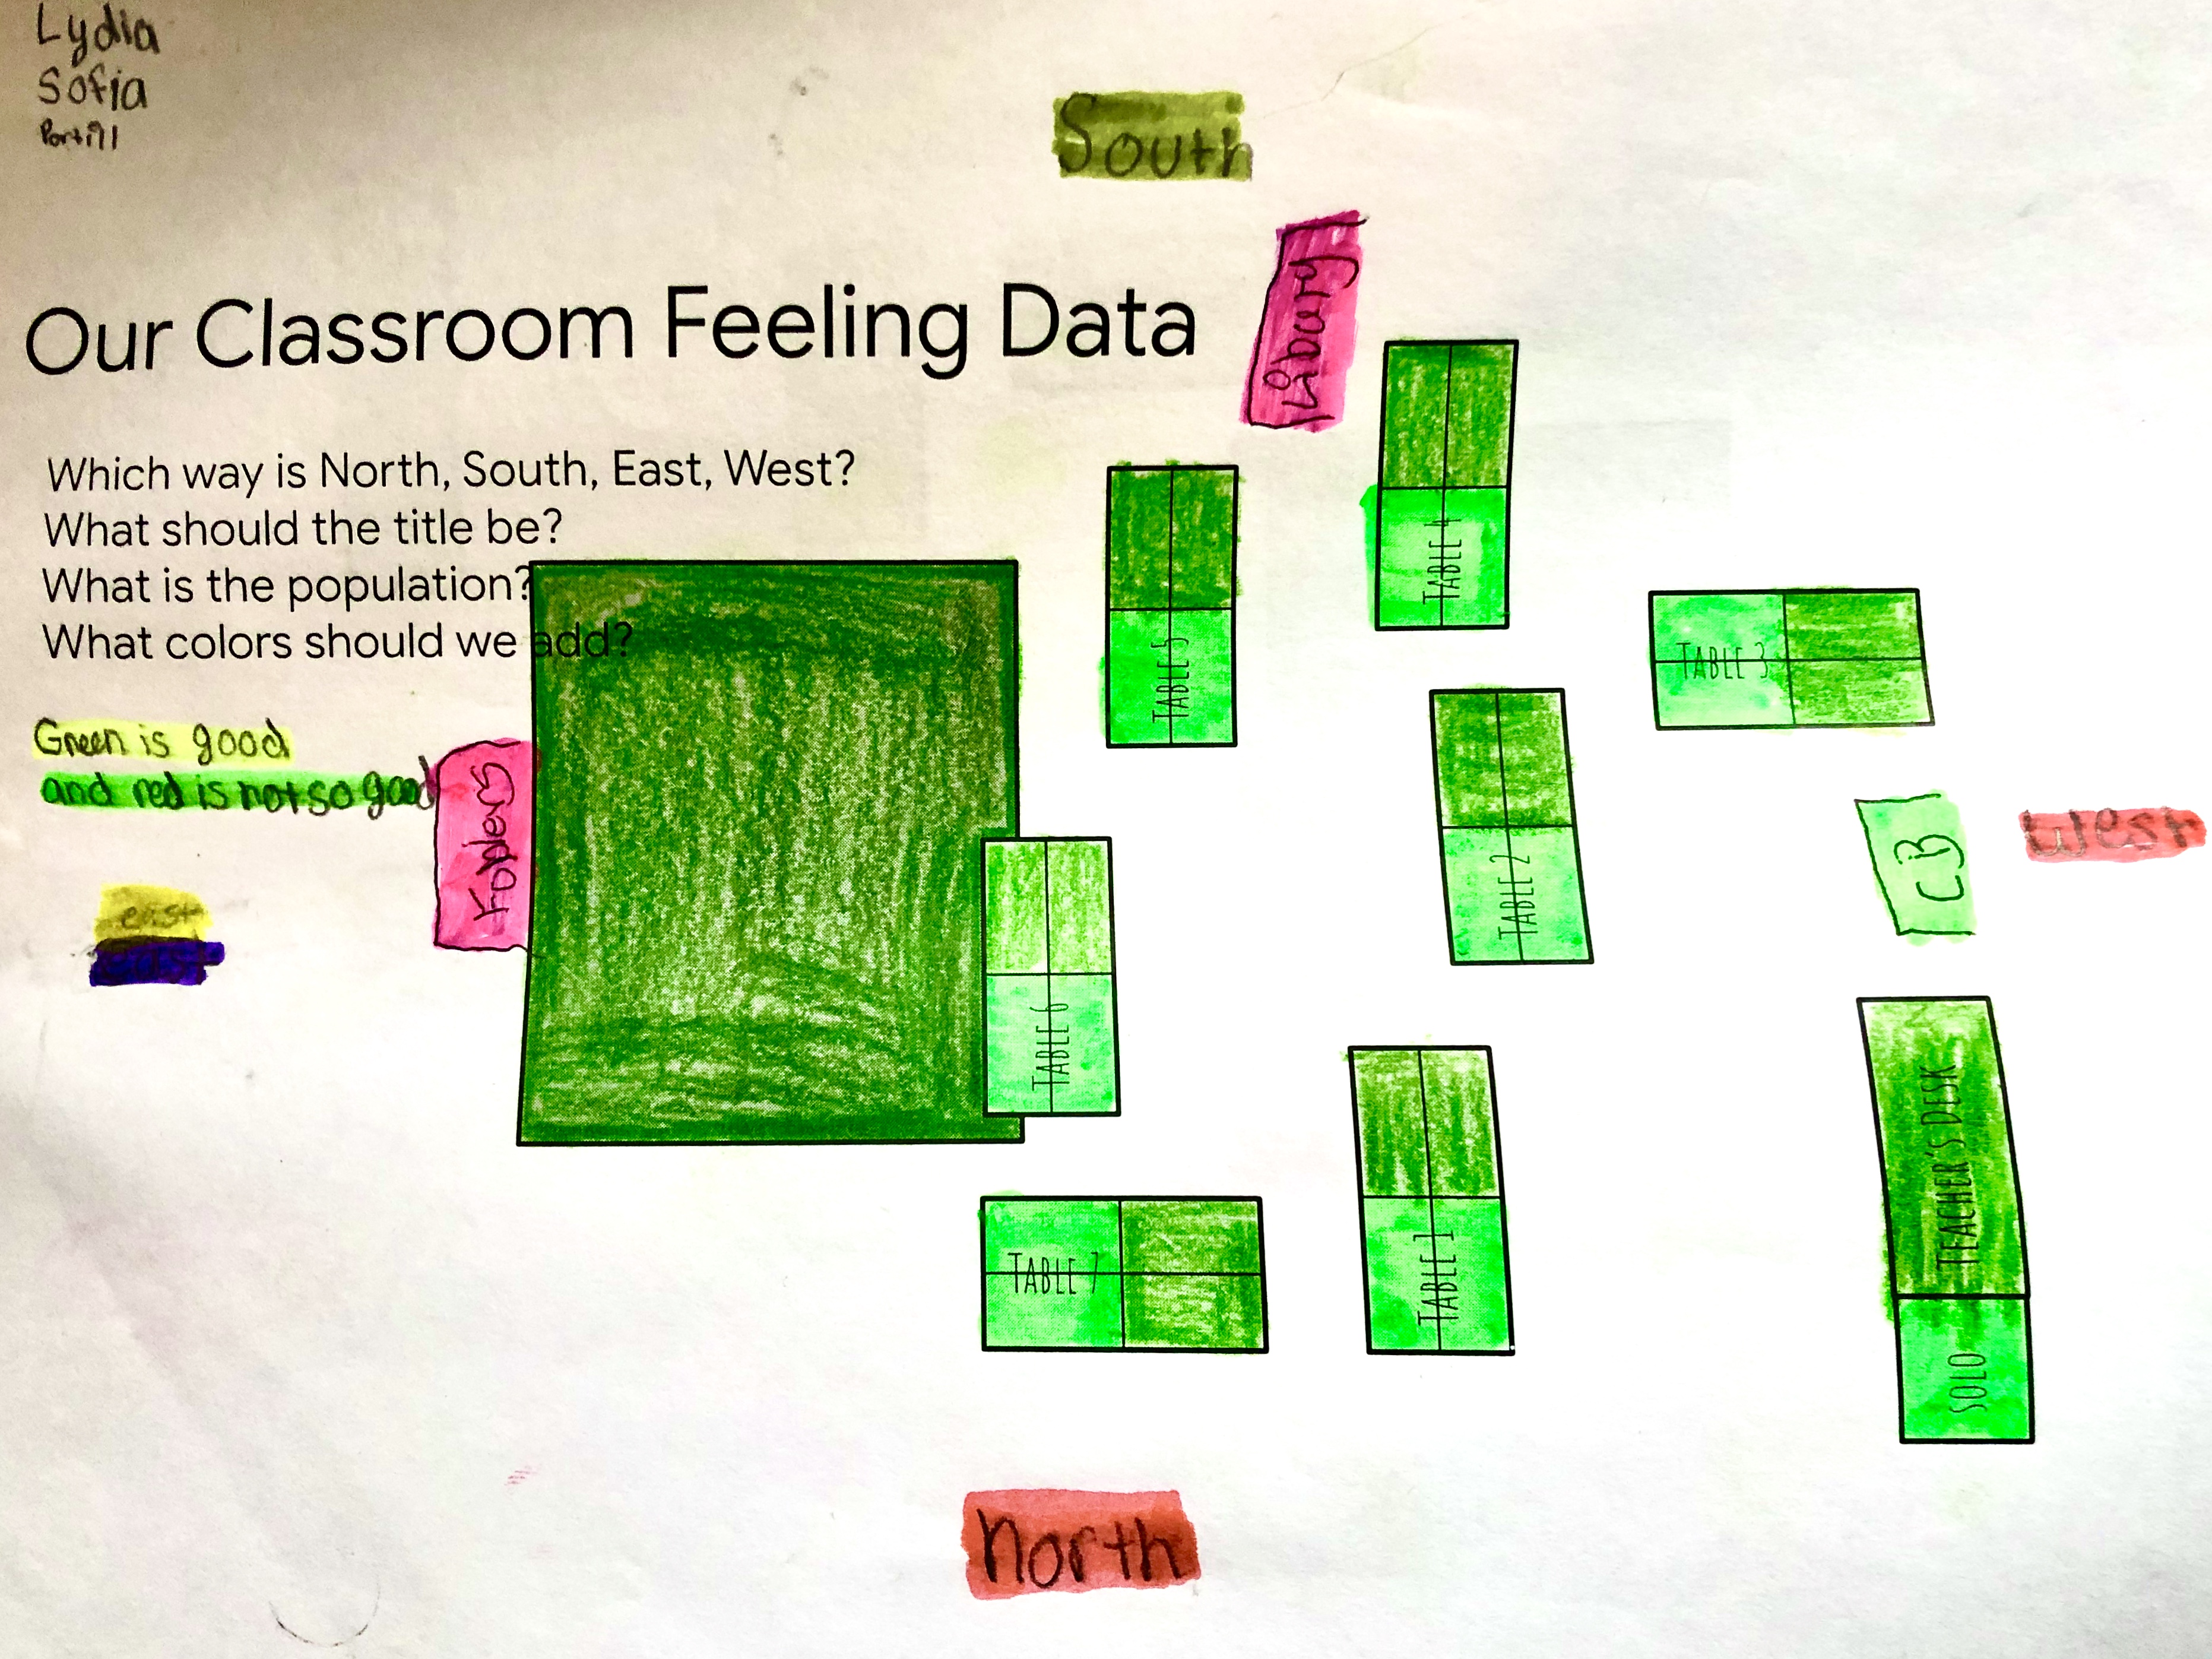 Lydia
Sofia
South
Library
Our Classroom Feeling Data
Which way is North, South, East, West?
What should the title be?
What is the population?
What colors should we add?
Green is good
and red is not so good
east
east
TABLE 4
TABLE 5
TABLE 3
TABLE 2
CB
West
TABLE 6
TEACHER'S DESK
TABLE 7
TABLE 1
SOLO
North